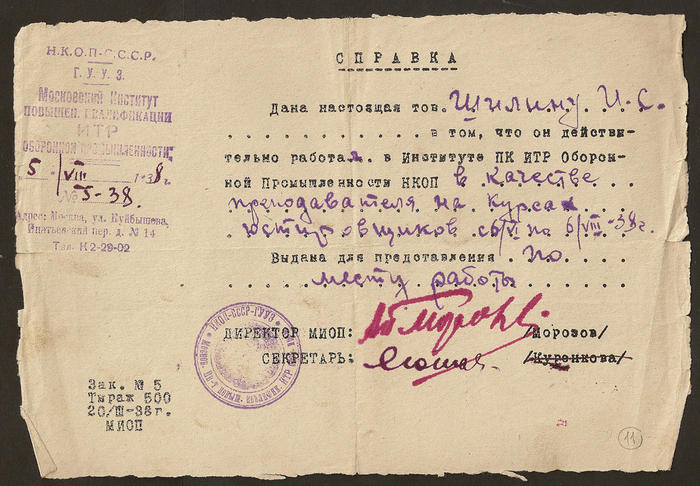 Н.К.О.П-С.С.С.Р.
Г. У. У. З.
Московский Институт
повышен. квалификации
ИТР
оборонной промышленности
5/VIII-1938г.
№ 5-38.
Адрес: Москва, ул. Куйбышева,
Ипатьевский пер. д. № 14
Тел. К 2-29-02
СПРАВКА
Дана настоящая тов. Шилину И. С.
в том, что он действи-
тельно работал в Институте ПК ИТР Оборон-
ной Промышленности НКОП в качестве
преподавателя на курсах
юстировщиков с 6/VI по 6/VIII-38г.
Выдана для представления по
месту работы
НКОП-СССР-ГУУЗ
ДИРЕКТОР МИОП: /Морозов/
СЕКРЕТАРЬ: /Куренкова/
Зак. № 5
Тыраж 500
20/III-38г.
МИОП
11